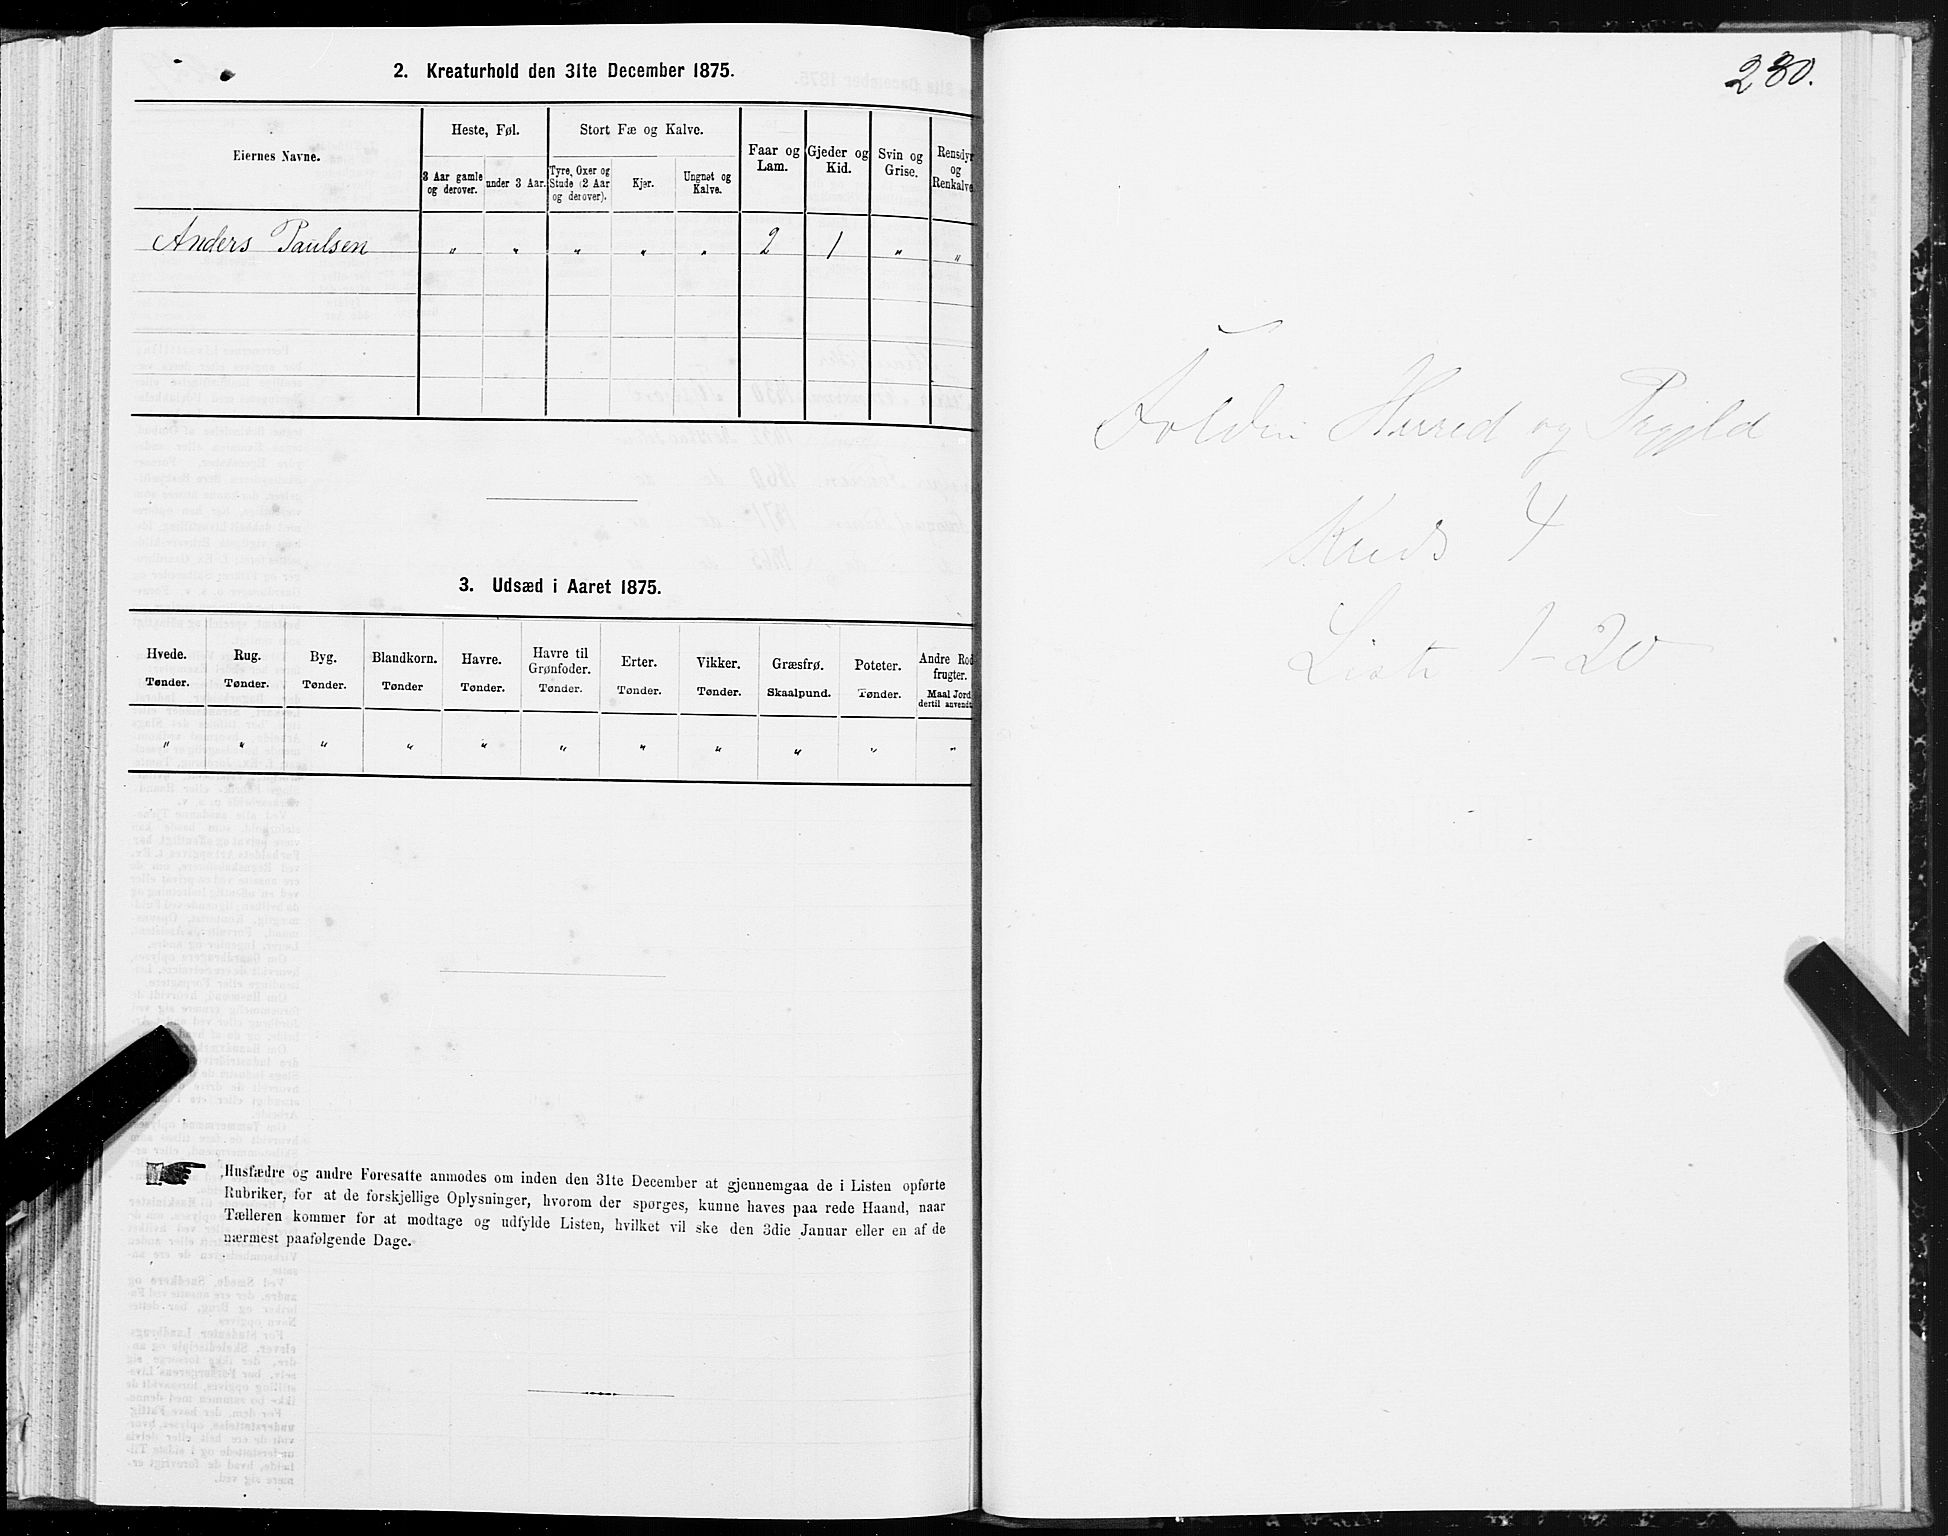 2. Kreaturhold den 31te December 1875.
Eiernes Navne.
Heste, Føl.
3 Aar gamle og derover.
under 3 Aar.
Stort Fæ og Kalve.
Tyre, Oxer og Stude (2 Aar og derover).
Kjør.
Ungnøt og Kalve.
Faar og Lam.
Gjeder og Kid.
Svin og Grise.
Rensdyr og Renkalve
Anders Paulsen " " " " " 2 1 " "
3. Udsæd i Aaret 1875.
Hvede. Rug. Byg. Blandkorn. Havre. Havre til Grønfoder. Erter. Vikker. Græsfrø. Poteter. Andre Rod frugter.
Tønder. Tønder. Tønder. Tønder Tønder. Tønder. Tønder. Tønder. Skaalpund. Tønder. Maal Jord dertil anvendt
" " " " " " " " " " "
Husfædre og andre Foresatte anmodes om inden den 31te December at gjennemgaa de i Listen opførte
Rubriker, for at de forskjellige Oplysninger, hvorom der spørges, kunne haves paa rede Haand, naar
Tælleren kommer for at modtage og udfylde Listen, hvilket vil ske den 3die Januar eller en af de
nærmest paafølgende Dage.
230.
Folden Herred og Prgjld
Kreds 4
Liste 1-20